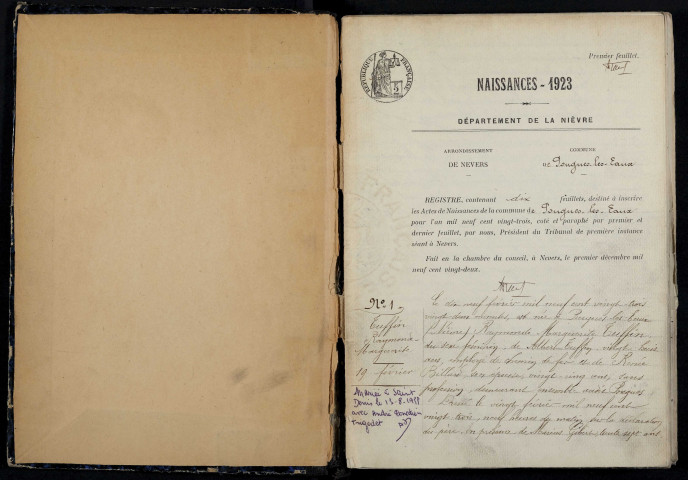 Premier feuillet.
RÉPUBLIQUE FRANÇAISE
NAISSANCES - 1923
DÉPARTEMENT DE LA NIÈVRE
ARRONDISSEMENT
COMMUNE
DE NEVERS
DE Pougues-les-Eaux
REGISTRE, contenant dix feuillets, destiné à inscrire
les Actes de Naissances de la commune de Pougues-les-Eaux
pour l'an mil neuf cent vingt-trois, coté et paraphé par premier et
dernier feuillet, par nous, Président du Tribunal de première instance
séant à Nevers.
Fait en la chambre du conseil, à Nevers, le premier décembre mil
neuf cent vingt-deux.
N° 1
Tuffin
Raymonde
Marguerite
19 février
Le dix neuf février mil neuf cent vingt trois
vingt deux heures, est née à Pougues les Eaux
(Nièvre) Raymonde Marguerite Tuffin
du sexe féminin, de Albert Tuffin, vingt huit
ans, employé de chemin de fer et de
son épouse, vingt cinq ans, sans
profession, demeurant ensemble
Dressé le vingt février mil neuf cent
vingt trois, heures du matin, sur la déclaration
du père. En présence de trente sept ans
Mariée à Saint
Denis le 13.8.1955
avec André